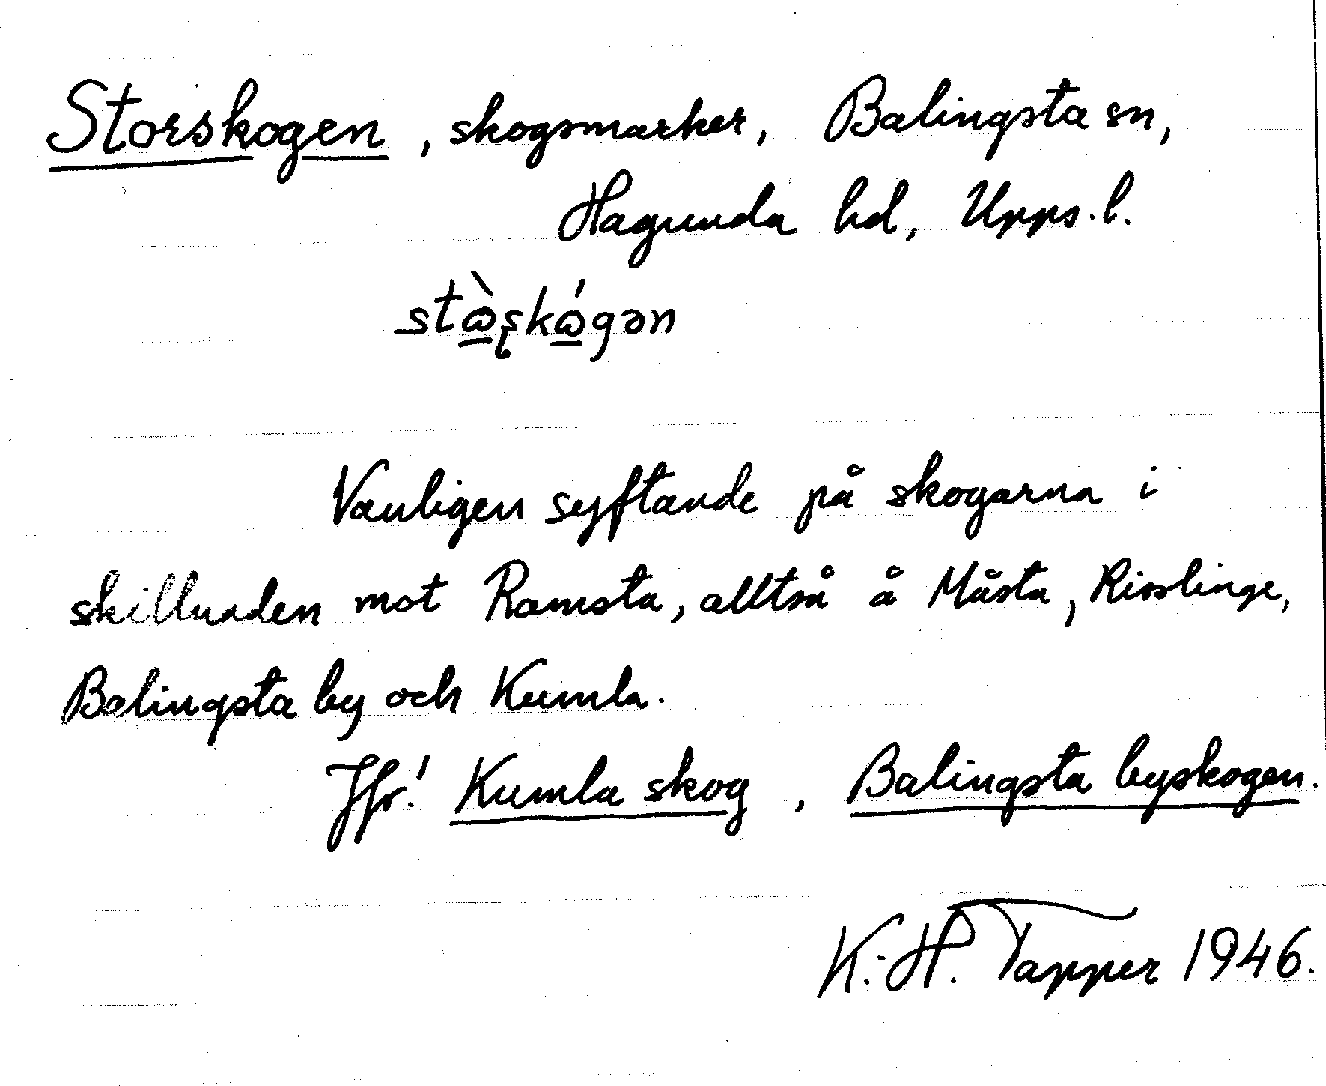 Storskogen, skogsmarker, Balingsta sn,
Hagunda hd, Upps. l.
stὼ̲ʂkώ̲gən
Vanligen syftande på skogarna i
skillnaden mot Ramsta, alltså å Måsta, Risslinge,
Balingsta by och Kumla.
Jfr! Kumla skog, Balingsta byskogen.
K.-H. Tapper 1946.